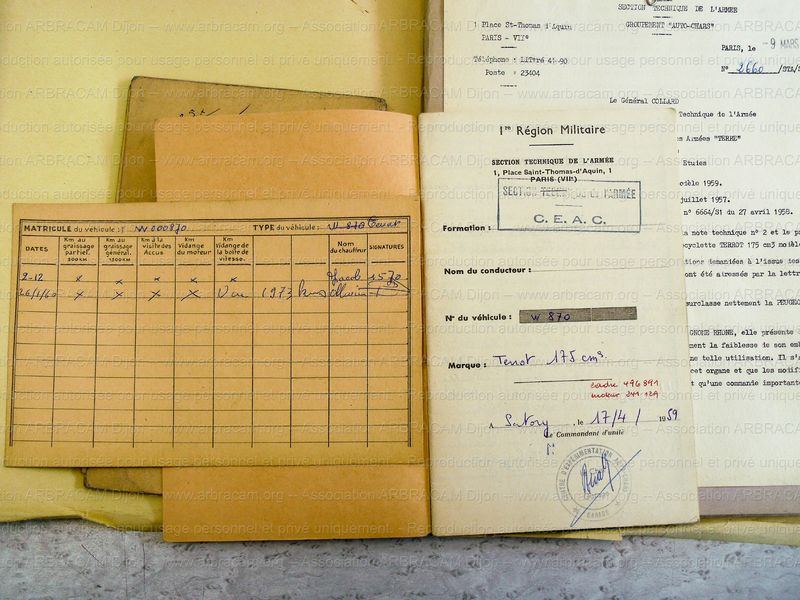 1 Place St-Thomas d'Aquin
PARIS - VII°
Téléphone : LITtré 41-90
Poste : 23404
SECTION TECHNIQUE DE L'ARMÉE
GROUPEMENT "AUTO-CHARS"
PARIS, le - 9 MARS
N° 2660 /STA/
Le Général COLLARD
Technique de l'Armée
es Armées "TERRE"
Etudes
odèle 1959.
juillet 1957.
n° 6664/S1 du 27 avril 1958.
a note technique n° 2 et le p
ocyclette TERROT 175 cm3 modèl
tions demandées à l'issue des
ont été adressés par la lettr
surclasse nettement la PEUGEO
GNOME RHONE, elle présente
ment la faiblesse de son emb
ne telle utilisation. Il s'a
cet organe et que les modifi
t qu'une commande important
MATRICULE du véhicule : W 000870 TYPE du véhicule :
DATES Km au graissage partiel. 500 KM Km au graissage général. 1500 KM Km à la visite des Accus Km Vidange du moteur Km Vidange de la boîte de vitesse. Nom du chauffeur SIGNATURES
2-12 x x x x x Jacob 1570
26/1/60 x x x x Vu 1973 kms
1re Région Militaire
SECTION TECHNIQUE DE L'ARMÉE
1, Place Saint-Thomas-d'Aquin, 1
PARIS (VIIe)
SECTION TECHNIQUE DE L'ARMÉE
C. E. A. C.
Formation :
Nom du conducteur :
N° du véhicule : W 870
Marque : Terrot 175 cm3
cadre 496891
moteur 341.129
A Satory , le 17/4/ 1959
Le Commandant d'unité
CENTRE D'EXPÉRIMENTATION
SATORY
Association ARBRACAM Dijon — www.arbracam.org — Association ARBRACAM Dijon
Reproduction autorisée pour usage personnel et privé uniquement.